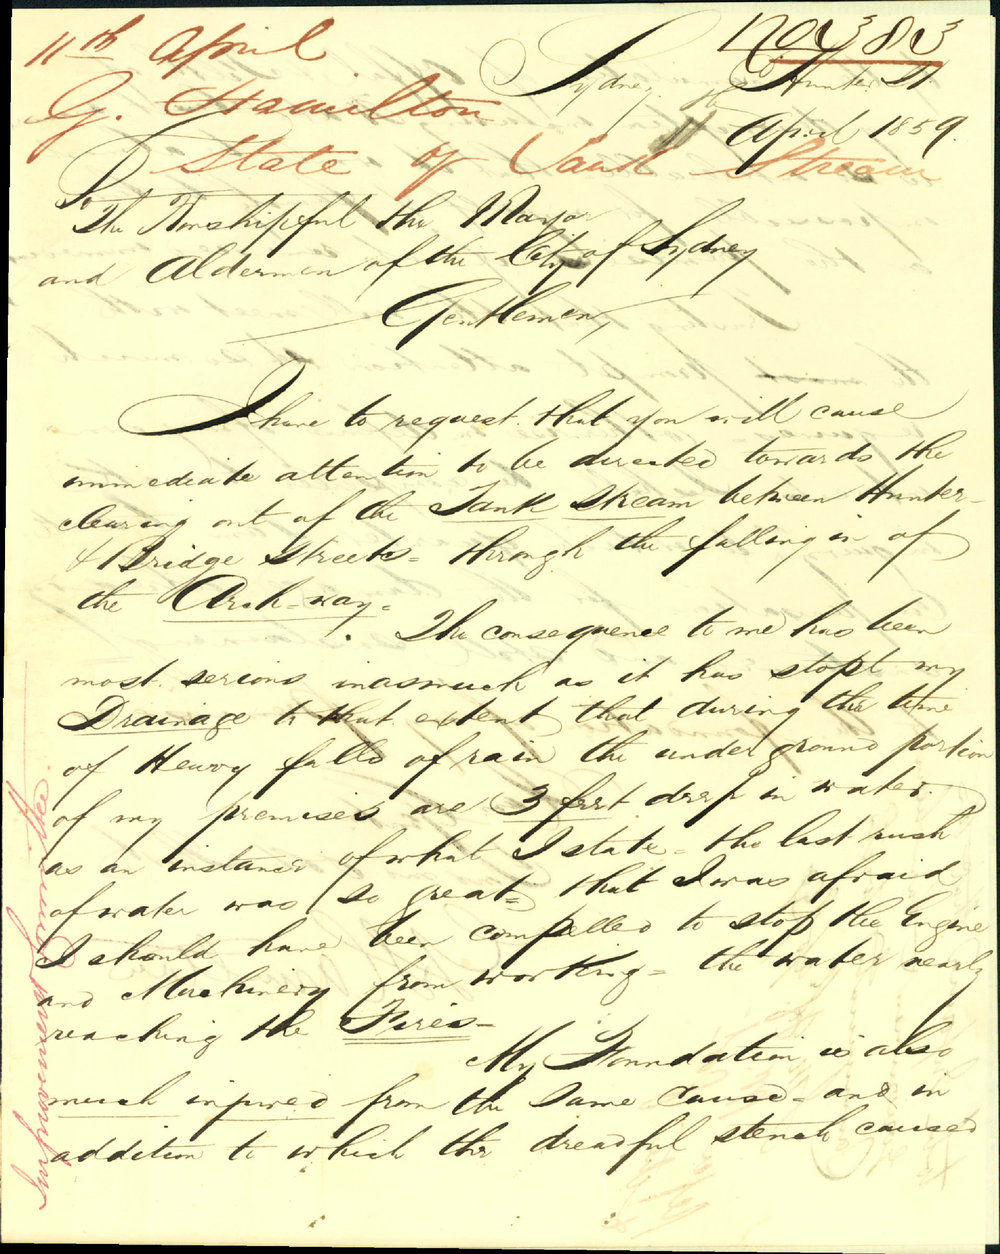 11th April
G. Hamilton
State of Tank Stream
Sydney Hunter St
April 1859.
To
The Worshipful the Mayor
and Aldermen of the City of Sydney
Gentlemen,
I have to request that you will cause
immediate attention to be directed towards the
clearing out of the Tank Stream between Hunter-
& Bridge Streets - through the falling in of
the Arch-way -
The consequence to me has been
most serious inasmuch as it has stopt my
Drainage to that extent that during the time
of Heavy falls of rain the under ground portion
of my premises are 3 feet deep in water.
as an instance of what I state - the last rush
of water was so great - that I was afraid
I should have been compelled to stop the Engine
and Machinery from working - the water nearly
reaching the Fires -
My Foundation is also
much injured from the same cause - and in
addition to which the dreadful stench caused
Improvement Committee.